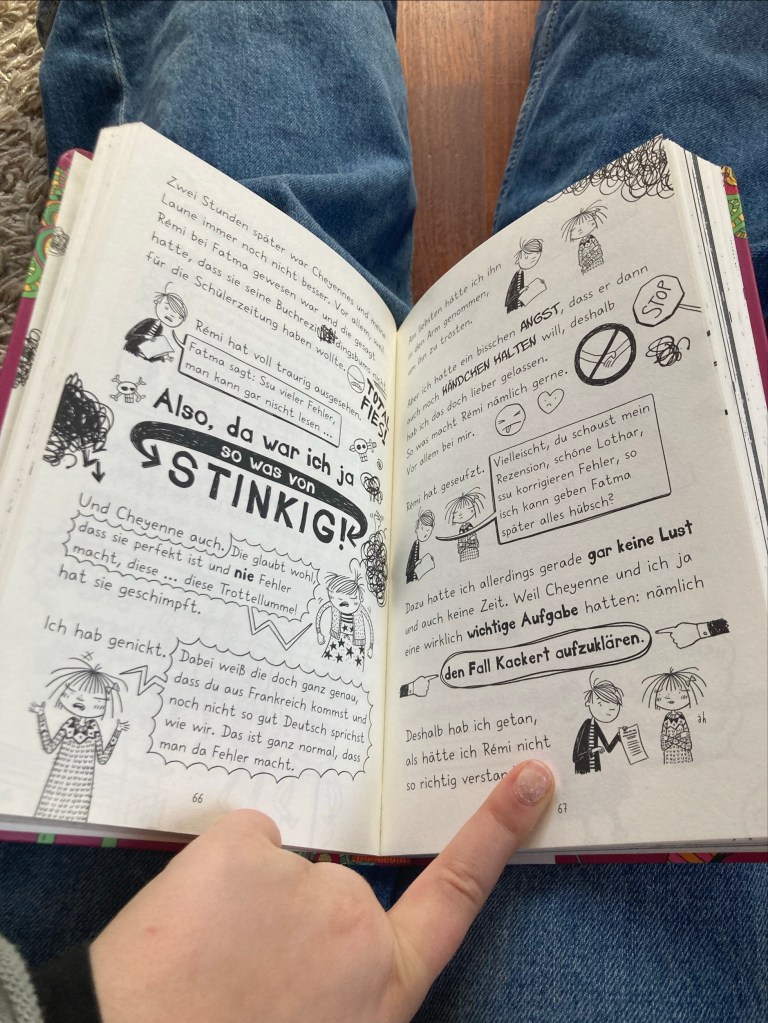 Zwei Stunden später war Cheyennes und meine
Laune immer noch nicht besser. Vor allem, weil
Rémi bei Fatma gewesen war und die gesagt
hatte, dass sie seine Buchrezi dingsbums nicht
für die Schülerzeitung haben wollte.
Rémi hat voll traurig ausgesehen.
Fatma sagt: Ssu vieler Fehler,
man kann gar nischt lesen ...
TOTAL
FIES!
Also, da war ich ja
so was von
STINKIG!
Und Cheyenne auch. Die glaubt wohl,
dass sie perfekt ist und nie Fehler
macht, diese ... diese Trottellumme!
hat sie geschimpft.
Ich hab genickt.
Dabei weiß die doch ganz genau,
dass du aus Frankreich kommst und
noch nicht so gut Deutsch sprichst
wie wir. Das ist ganz normal, dass
man da Fehler macht.
66
Am liebsten hätte ich ihn
in den Arm genommen,
um ihn zu trösten.
Aber ich hatte ein bisschen ANGST, dass er dann
auch noch HÄNDCHEN HALTEN will, deshalb
hab ich das doch lieber gelassen.
So was macht Rémi nämlich gerne.
Vor allem bei mir.
STOP
Rémi hat geseufzt.
Vielleischt, du schaust mein
Rezension, schöne Lothar,
ssu korrigieren Fehler, so
isch kann geben Fatma
später alles hübsch?
Dazu hatte ich allerdings gerade gar keine Lust
und auch keine Zeit. Weil Cheyenne und ich ja
eine wirklich wichtige Aufgabe hatten: nämlich
den Fall Kackert aufzuklären.
Deshalb hab ich getan,
als hätte ich Rémi nicht
so richtig
äh
67